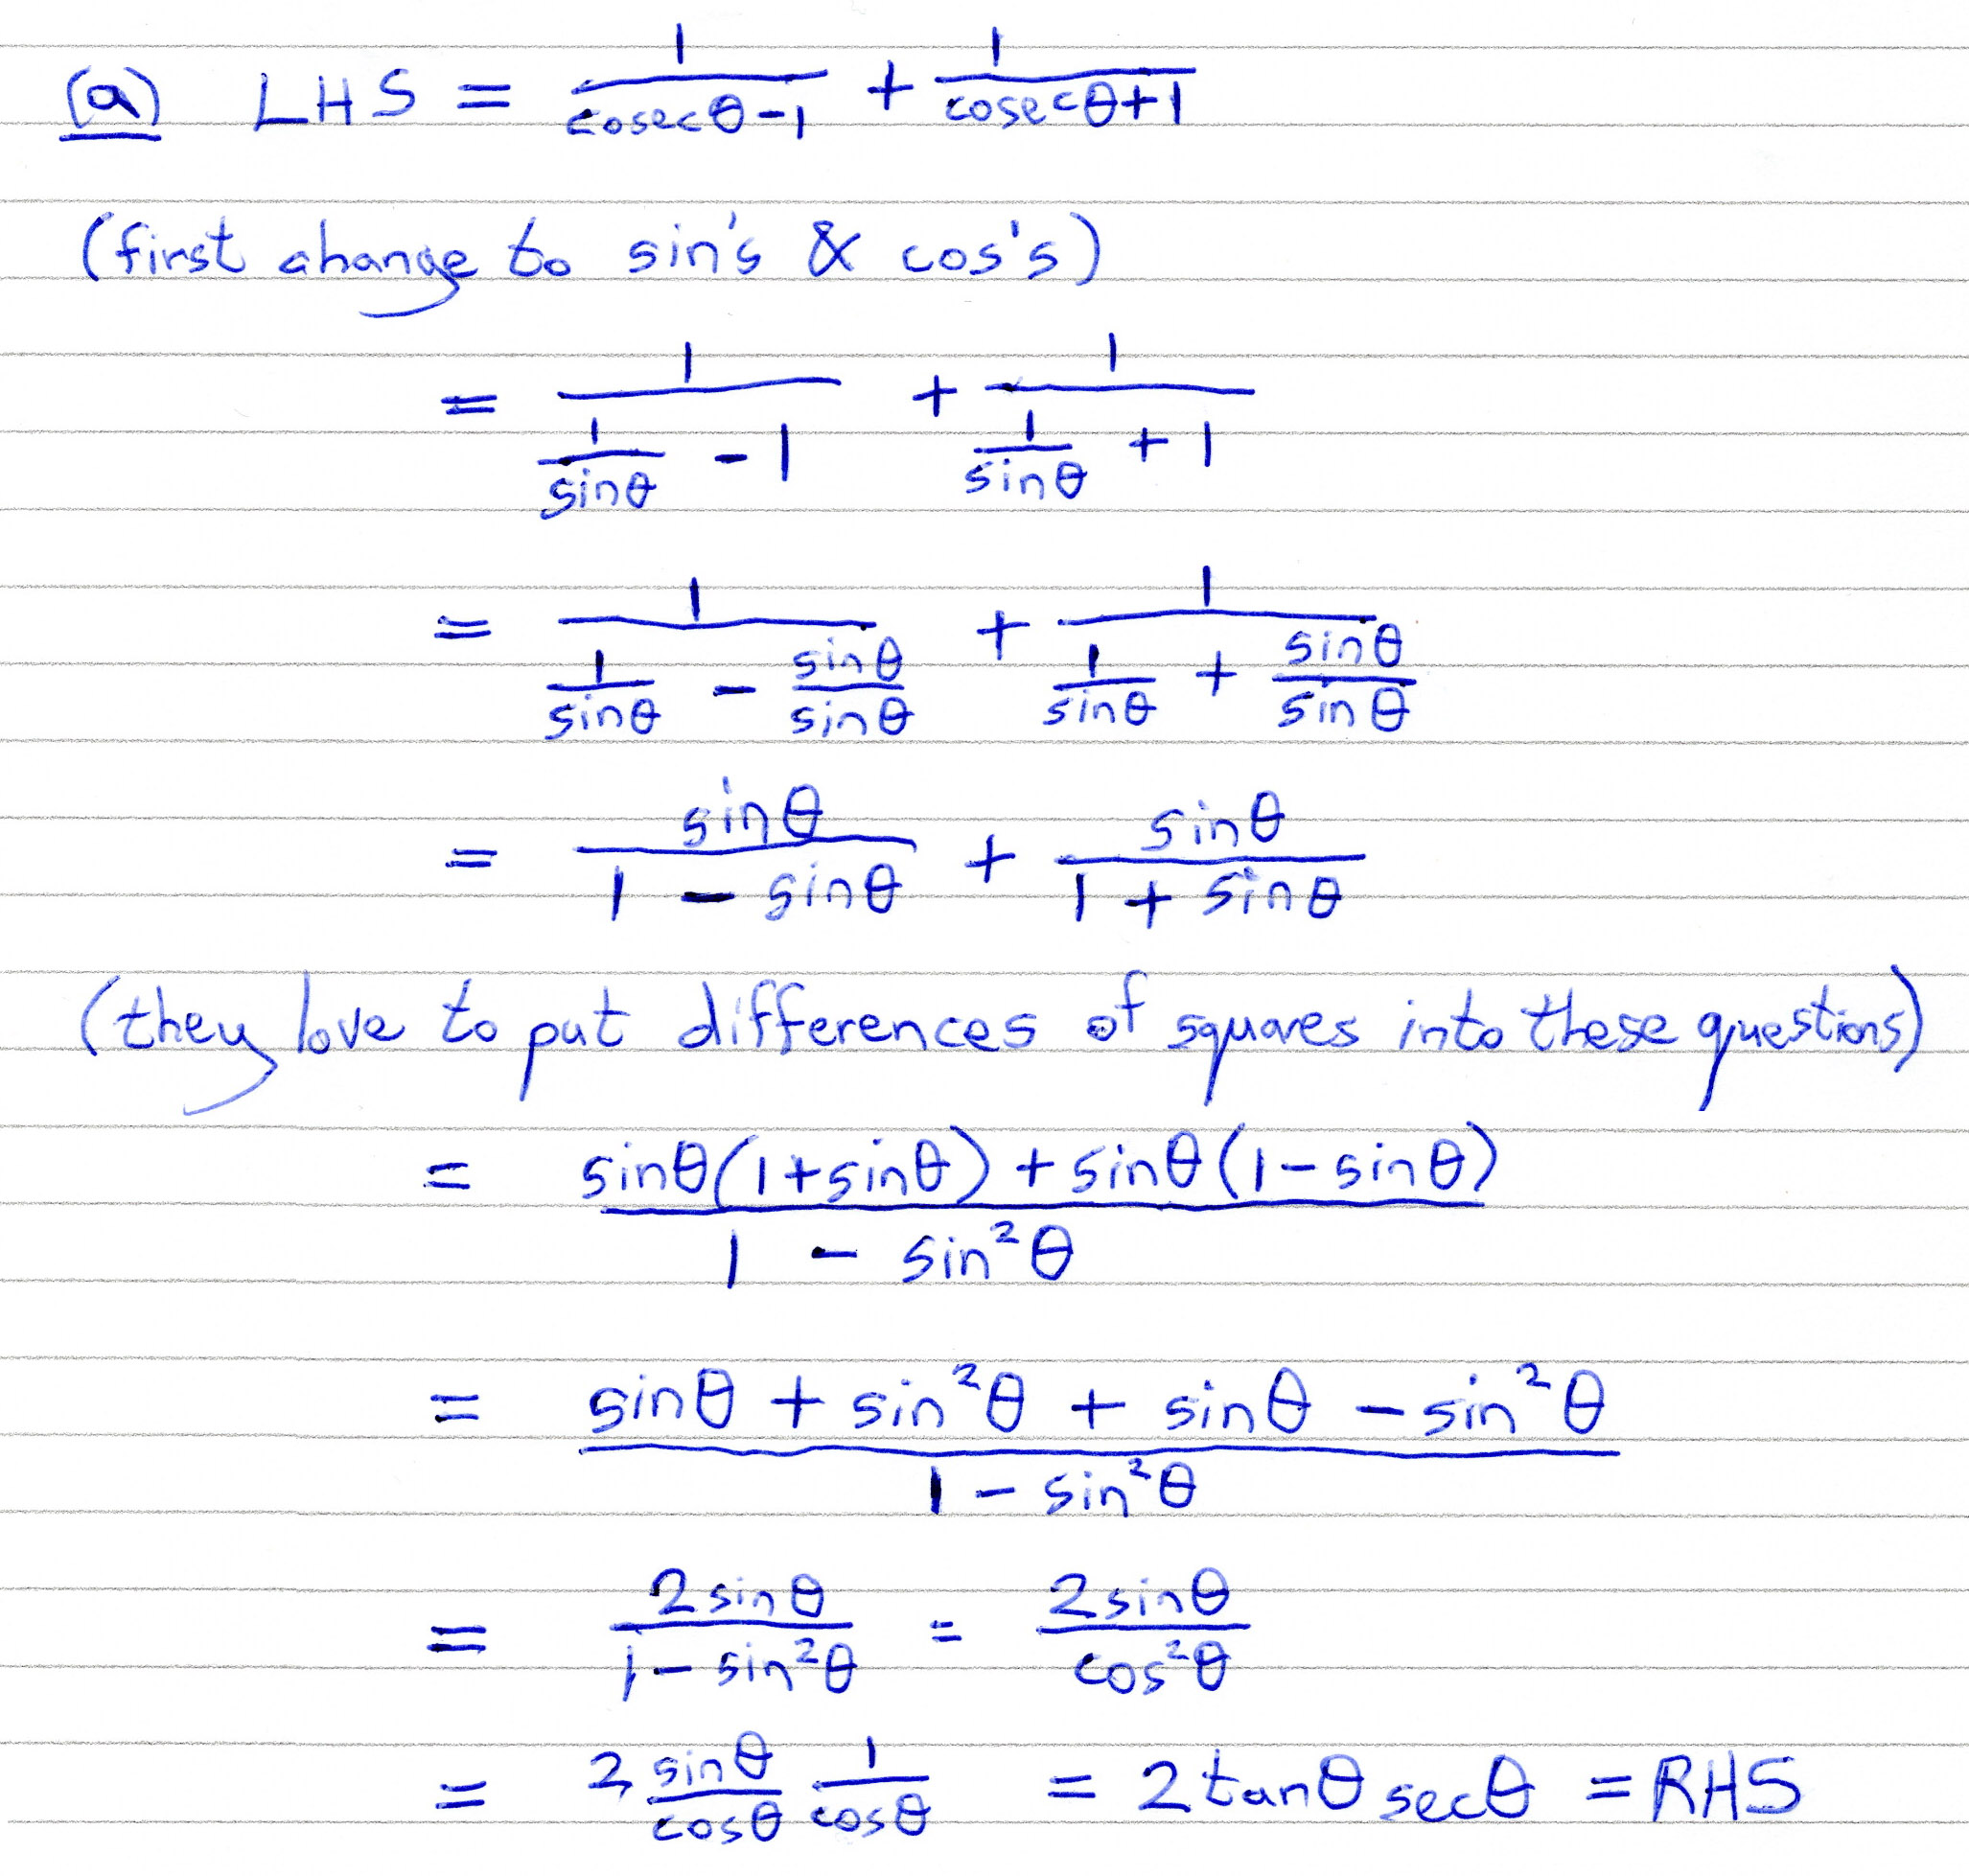 (a) LHS = 1/(cosecθ-1) + 1/(cosecθ+1)
(first change to sin's & cos's)
= 1/(1/sinθ - 1) + 1/(1/sinθ + 1)
= 1/(1/sinθ - sinθ/sinθ) + 1/(1/sinθ + sinθ/sinθ)
= sinθ/(1 - sinθ) + sinθ/(1 + sinθ)
(they love to put differences of squares into these questions)
= (sinθ(1+sinθ) + sinθ(1-sinθ))/(1 - sin²θ)
= (sinθ + sin²θ + sinθ - sin²θ)/(1 - sin²θ)
= 2sinθ/(1 - sin²θ) = 2sinθ/cos²θ
= 2 sinθ/cosθ 1/cosθ = 2tanθ secθ = RHS